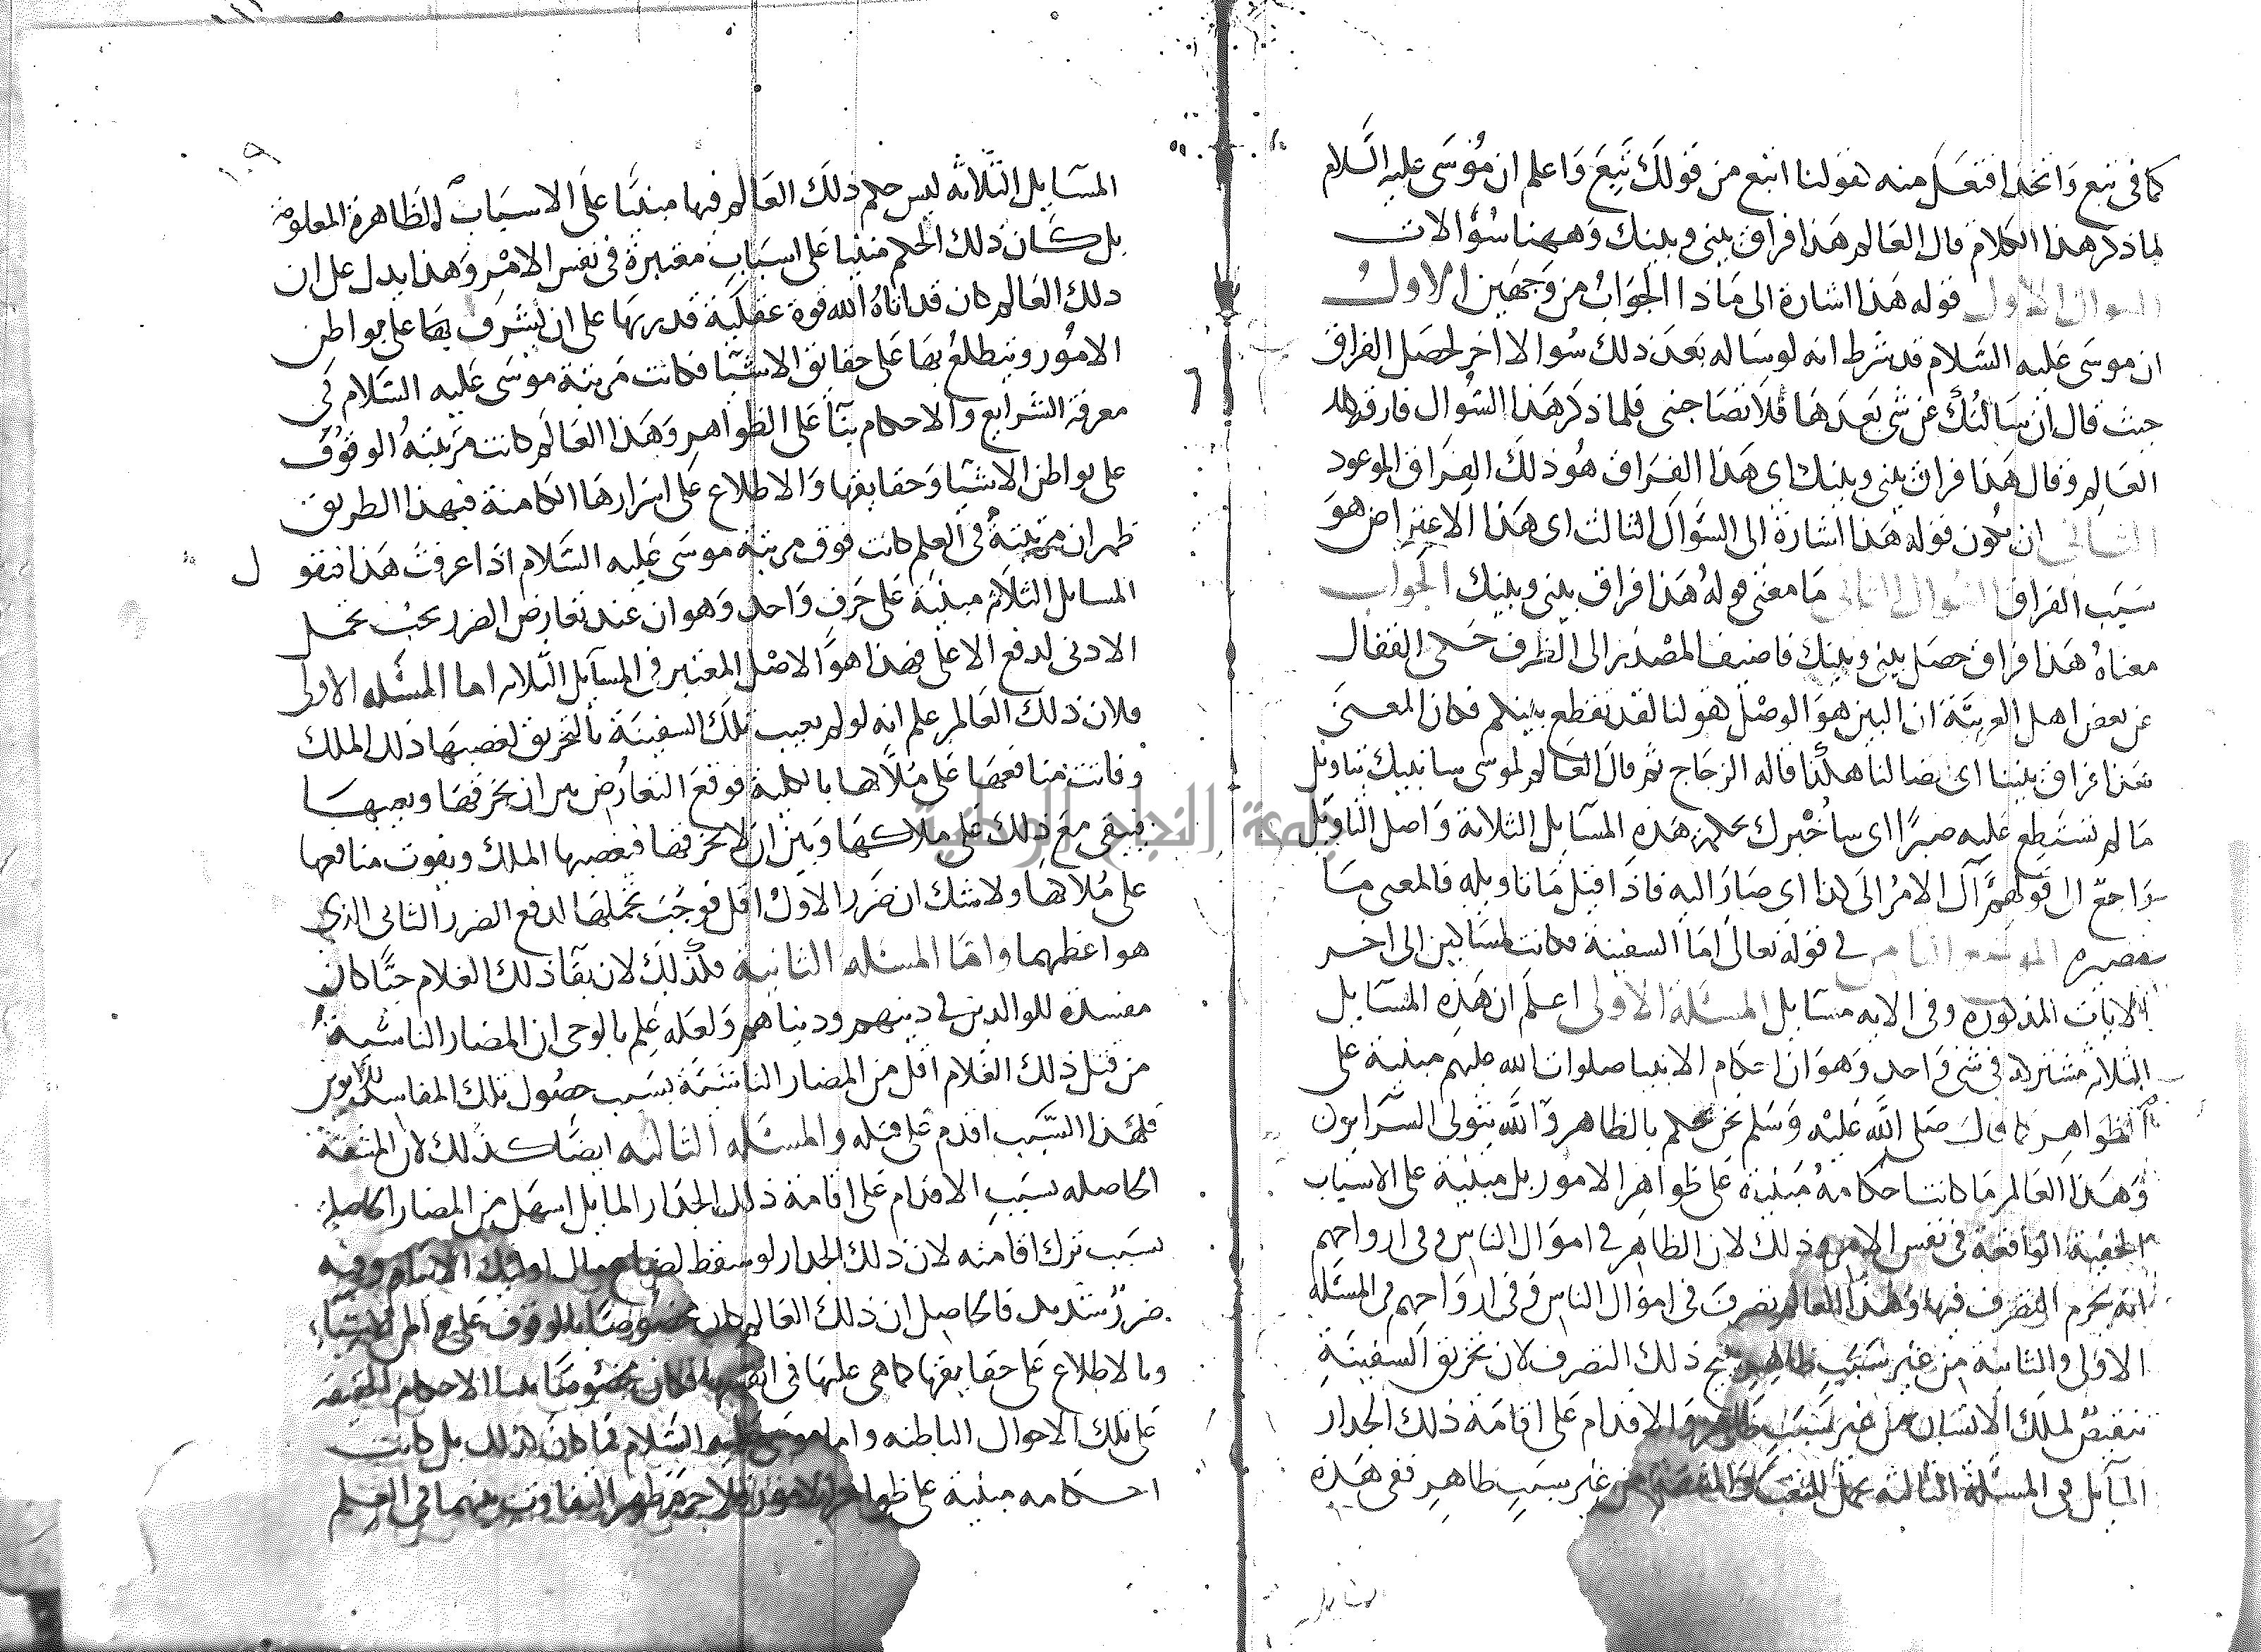 كما في تبع واتخذ افتعل منه كقولنا اتبع من قولك تبع واعلم ان موسى عليه السلام
لما ذكر هذا الكلام قال العالم هذا فراق بيني وبينك وههنا سوالات
السوال الاول قوله هذا اشارة الى ماذا الجواب من وجهين الاول
ان موسى عليه السلام قد شرط انه لو ساله بعد ذلك سوالا اخر لحصل الفراق
حيث قال ان سالتك عن شي بعدها فلا تصاحبني فلما ذكر هذا السوال فارقه
العالم وقال هذا فراق بيني وبينك اي هذا الفراق هو ذلك الفراق الموعود
الثاني ان يكون قوله هذا اشارة الى السوال الثالث اى هذا الاعتراض هو
سبب الفراق السوال الثاني ما معنى قوله هذا فراق بيني وبينك الجواب
معناه هذا فراق حصل بيني وبينك فاضيف المصدر الى الظرف حكى القفال
عن بعض اهل العربية ان البين هو الوصل كقولنا لقد تقطع بينكم فكان المعنى
هذا فراق بيننا اى اتصالنا هكذا قاله الزجاج ثم قال العالم لموسى سانبيك بتاويل
ما لم تستطع عليه صبرا اى ساخبرك بحكمة هذه المسايل الثلاثة واصل التاويل
راجع الى قولهم آل الامر الى كذا اى صار اليه فاذا قيل ما تاويله فالمعنى ما
مصيره الموضع الثامن في قوله تعالى اما السفينة فكانت لمساكين الى اخر
الايات المذكورة وفي الايه مسايل المسئلة الاولى اعلم ان هذه المسايل
الثلاثه مشتركة في شئ واحد وهو ان احكام الانبيا صلوات الله عليهم مبنية على
الظواهر كما قال صلى الله عليه وسلم نحن نحكم بالظاهر والله يتولى السراير
وهذا العالم ما كانت احكامه مبنية على ظواهر الامور بل مبنية على الاسباب
الحقيقية الواقعة في نفس الامر وذلك لان الظاهر في اموال الناس وفي ارواحهم
انه يحرم التصرف فيها وهذا العالم تصرف في اموال الناس وفي ارواحهم في المسئلة
الاولى والثانية من غير سبب ظاهر يبيح ذلك التصرف لان تخريق السفينة
تنقيص لملك الانسان من غير سبب ظاهر والاقدام على اقامة ذلك الجدار
المايل في المسئلة الثالثة تحمل التعب والمشقة من غير سبب ظاهر ففي هذه
المسايل
١٠٩
المسايل الثلاثه ليس حكم ذلك العالم فيها مبنيا على الاسباب الظاهرة المعلومة
بل كان ذلك الحكم مبنيا على اسباب معتبرة في نفس الامر وهذا يدل على ان
ذلك العالم كان قد اتاه الله قوة عقلية قدر بها على ان يشرف بها على بواطن
الامور ويطلع بها على حقايق الاشيا فكانت مرتبة موسى عليه السلام في
معرفة الشرايع والاحكام بنآ على الظواهر وهذا العالم كانت مرتبته الوقوف
على بواطن الاشيا وحقايقها والاطلاع على اسرارها الكامنة فبهذا الطريق
ظهر ان مرتبته في العلم كانت فوق مرتبة موسى عليه السلام اذا عرفت هذا فنقول
المسايل الثلاثه مبنية على حرف واحد وهو ان عند تعارض الضرر يجب تحمل
الادنى لدفع الاعلى فهذا هو الاصل المعتبر في المسآيل الثلاثه اما المسئله الاولى
فلان ذلك العالم علم انه لو لم يعيب تلك السفينة بالتخريق لغصبها ذلك الملك
وفاتت منافعها على ملاكها بالكلية فوقع التعارض بين ان يخرقها ويعيبها
فيبقى مع ذلك على ملاكها وبين ان لا يخرقها فيغصبها الملك ويفوت منافعها
على ملاكها ولا شك ان ضرر الاول اقل فوجب تحملها لدفع الضرر الثاني الذي
هو اعظمهما واما المسئله الثانية فلذلك لان بقا ذلك الغلام حيا كان
مفسدة للوالدين في دينهم ودنياهم ولعله علم بالوحي ان المضار الناشية
من قتل ذلك الغلام اقل من المضار الناشية بسبب حصول تلك المفاسد للابوين
فلهذا السبب اقدم على قتله والمسئله الثالثه ايضا كذلك لان المشقة
الحاصله بسبب الاقدام على اقامة ذلك الجدار المايل اسهل من المضار الحاصلة
بسبب ترك اقامته لان ذلك الجدار لو سقط لضاع مال اوليك الايتام وفيه
ضرر شديد فالحاصل ان ذلك العالم كان مخصوصا بالوقوف على بواطن الاشياء
وبالاطلاع على حقايقها كما هي عليها في انفسها فكان مخصوصا الاحكام الحقيقة
على تلك الاحوال الباطنه واما موسى عليه السلام فما كان كذلك بل كانت
احكامه مبنية على ظواهر الامور فلا جرم ظهر التفاوت بينهما في العلم